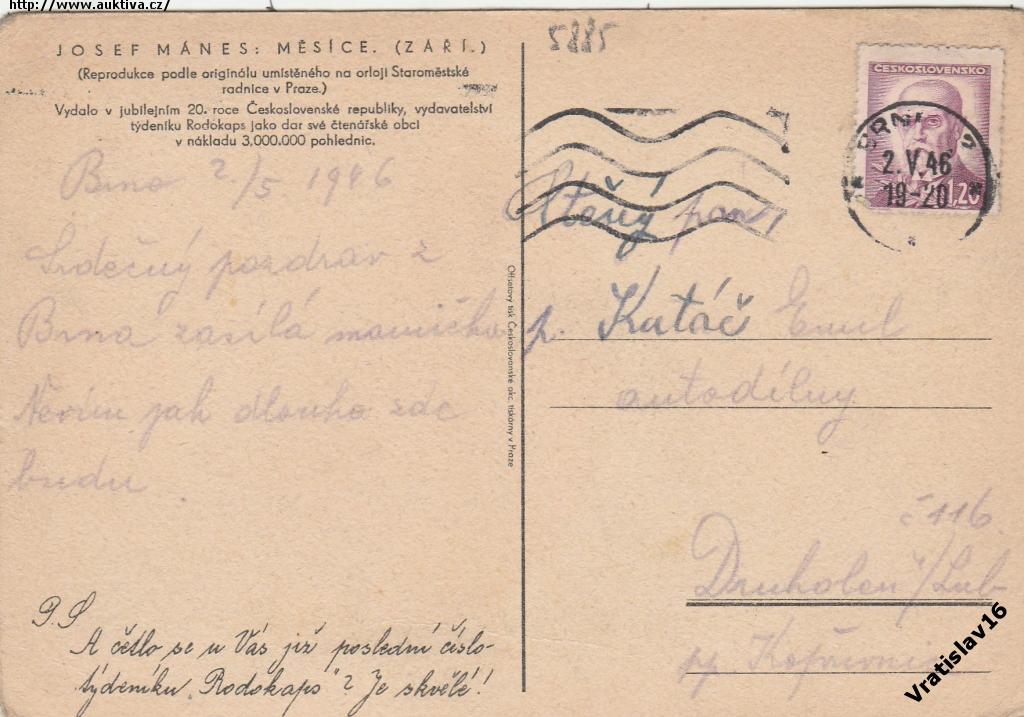 http://www.auktiva.cz/
JOSEF MÁNES: MĚSÍCE. (ZÁŘÍ.)
(Reprodukce podle originálu umístěného na orloji Staroměstské
radnice v Praze.)
Vydalo v jubilejním 20. roce Československé republiky, vydavatelství
týdeníku Rodokaps jako dar své čtenářské obci
v nákladu 3,000.000 pohlednic.
Brno 2./5 1946
Srdečný pozdrav z
Brna zasílá mamička
Nevím jak dlouho zde
budu.
P.S
A četlo se u Vás již poslední číslo
týdeníku „Rodokaps"? Je skvělé!
Offsetový tisk Československé akc. tiskárny v Praze
5885
ČESKOSLOVENSKO
1,20
BRNO 2
2.V.46
19-20
Ctěný pan
p. Katáč Emil
autodílny
č 116.
pp Kopřivnice
Vratislav16